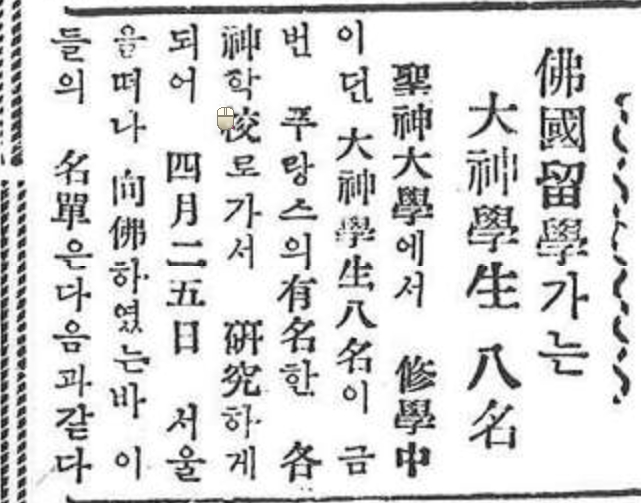 佛國留學가는
大神學生 八名
聖神大學에서 修學中
이던 大神學生八名이 금
번 푸랑스의有名한 各
神학校로가서 硏究하게
되어 四月二五日 서울
을떠나 向佛하였는바 이
들의 名單은다음과같다